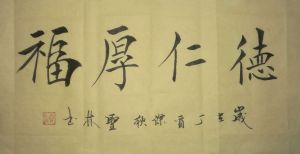 德仁厚福
歲在丁酉深秋聖林书